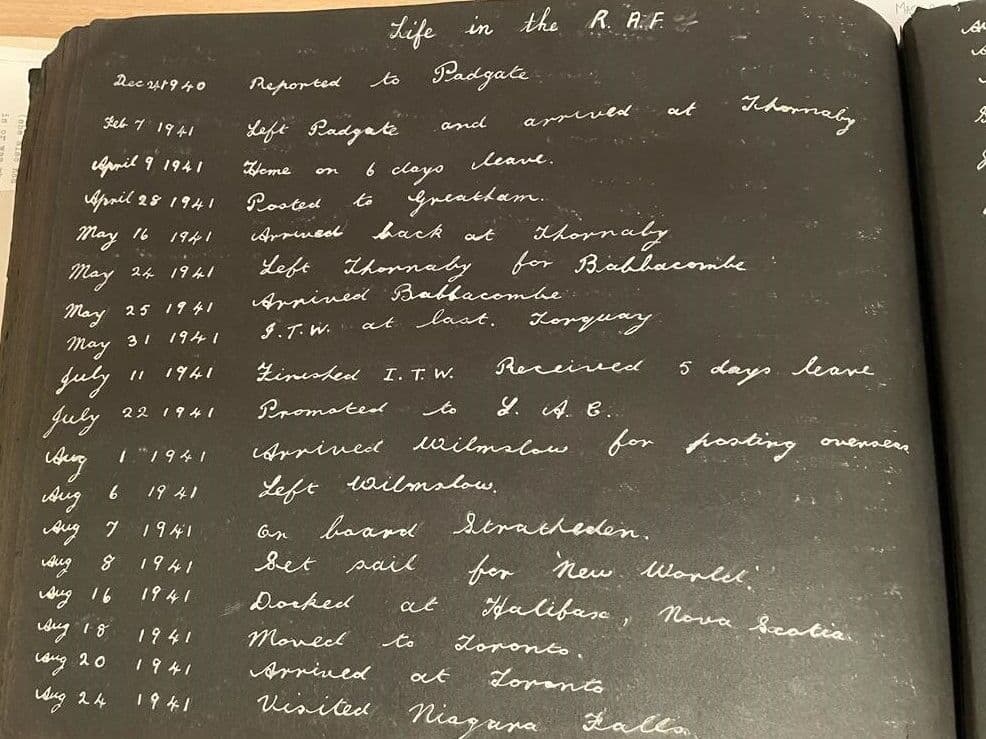 Life in the R.A.F.
Dec 24 1940 Reported to Padgate
Feb 7 1941 Left Padgate and arrived at Thornaby
April 9 1941 Home on 6 days leave.
April 28 1941 Posted to Greatham.
May 16 1941 Arrived back at Thornaby
May 24 1941 Left Thornaby for Babbacombe
May 25 1941 Arrived Babbacombe
May 31 1941 I.T.W. at last. Torquay
July 11 1941 Finished I.T.W. Received 5 days leave
July 22 1941 Promoted to L.A.C.
Aug 1 1941 Arrived Wilmslow for posting overseas
Aug 6 1941 Left Wilmslow.
Aug 7 1941 On board Stratheden.
Aug 8 1941 Set sail for 'New World'.
Aug 16 1941 Docked at Halifax, Nova Scotia
Aug 18 1941 Moved to Toronto.
Aug 20 1941 Arrived at Toronto
Aug 24 1941 Visited Niagara Falls